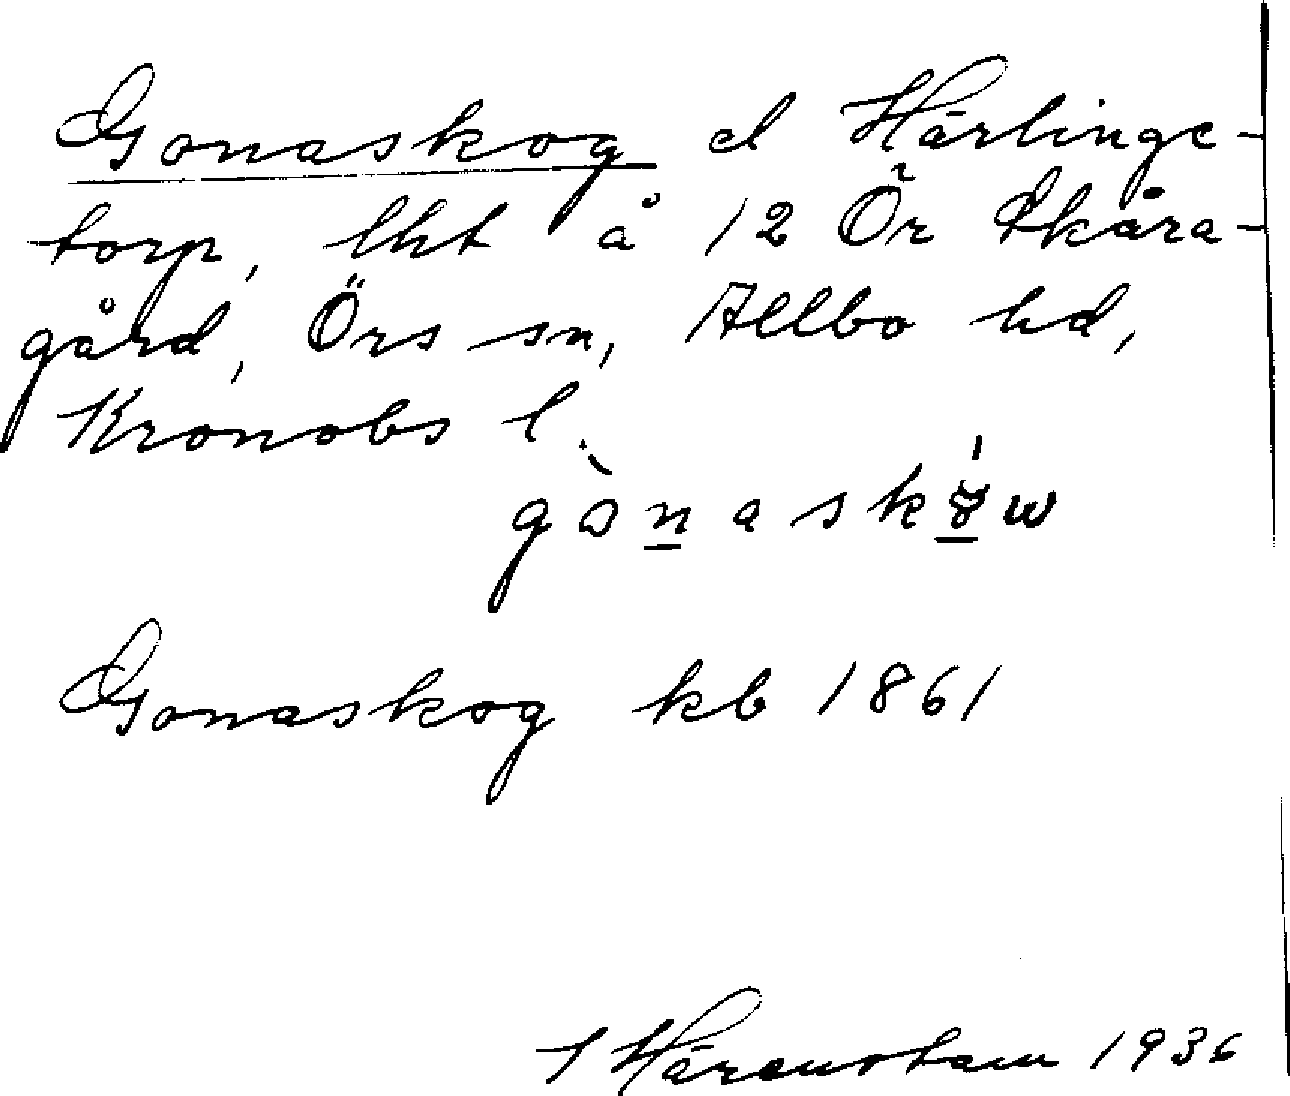 Gonaskog el Härlinge-
torp, lht å 12 Ör Skåra-
gård, Örs sn, Allbo hd,
Kronobs l.
Gonaskog kb 1861
1936